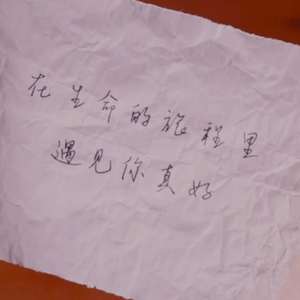 在生命的旅程里
遇见你真好